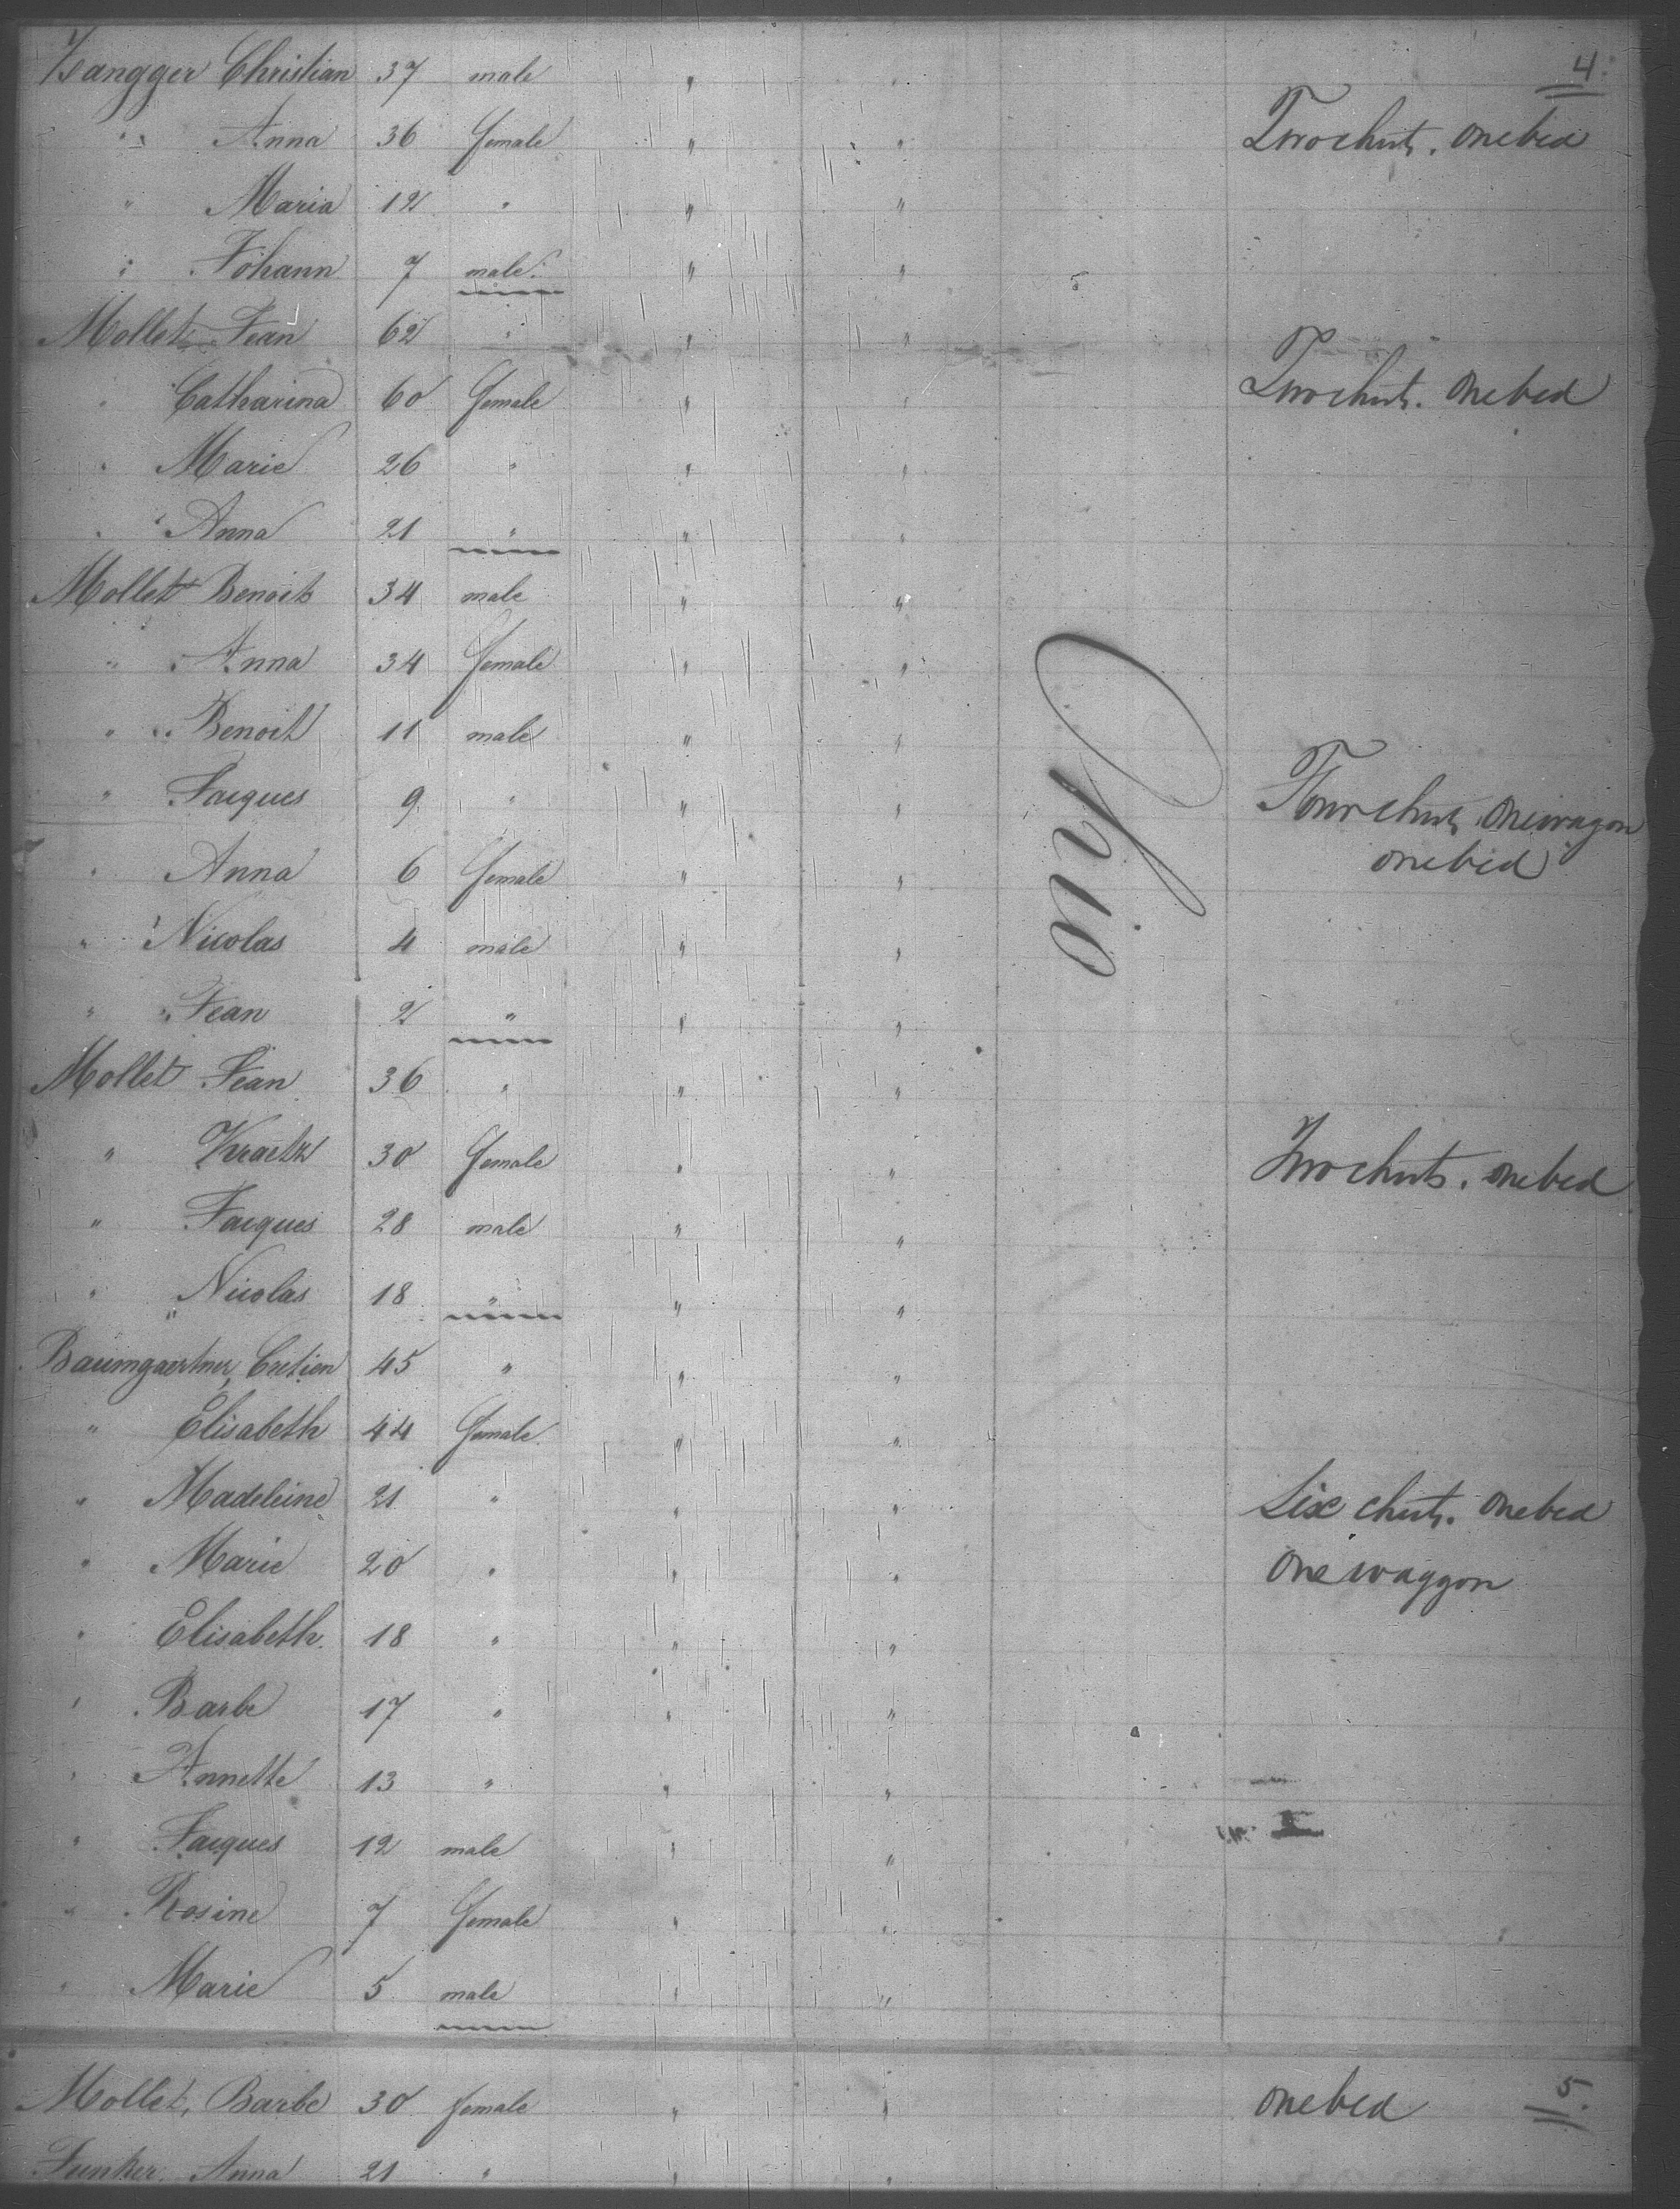 Zangger Christian 37 male " " 4.
" Anna 36 female " " Two chests. one bed
" Maria 12 " " "
" Johann 7 male. " "
Mollet Jean 62 " " "
" Catharina 60 female " " Two chests. One bed
" Marie 26 " " "
" Anna 21 " " "
Mollet Benoit 34 male " "
" Anna 34 female " "
" Benoit 11 male " "
" Jacques 9 " " " Four chests, one wagon
" Anna 6 female " " one bed
" Nicolas 4 male " "
" Jean 2 " " "
Ohio
Mollet Jean 36 " " "
" 30 female " " Two chests. one bed
" Jacques 28 male " "
" Nicolas 18 " " "
Baumgaertner, Cretien 45 " " "
" Elisabeth 44 female " "
" Madeleine 21 " " " Six chests. One bed
" Marie 20 " " " One waggon
" Elisabeth 18 " " "
" Barbe 17 " " "
" Annette 13 " " "
" Jacques 12 male " "
" Rosine 7 female " "
" Marie 5 male " "
Mollet, Barbe 30 female " " One bed 5.
Junker. Anna 21 " " "